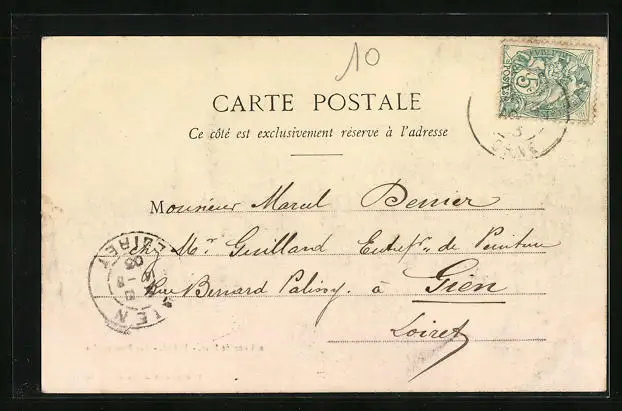 10
POSTES
5
CARTE POSTALE
Ce côté est exclusivement réservé à l'adresse
ORNE
Monsieur Marcel Perrier
Ch. Mr Guilland Entrepr. de Peinture
Rue Bernard Palissy. à Gien
Loiret
GIEN
LOIRET
03